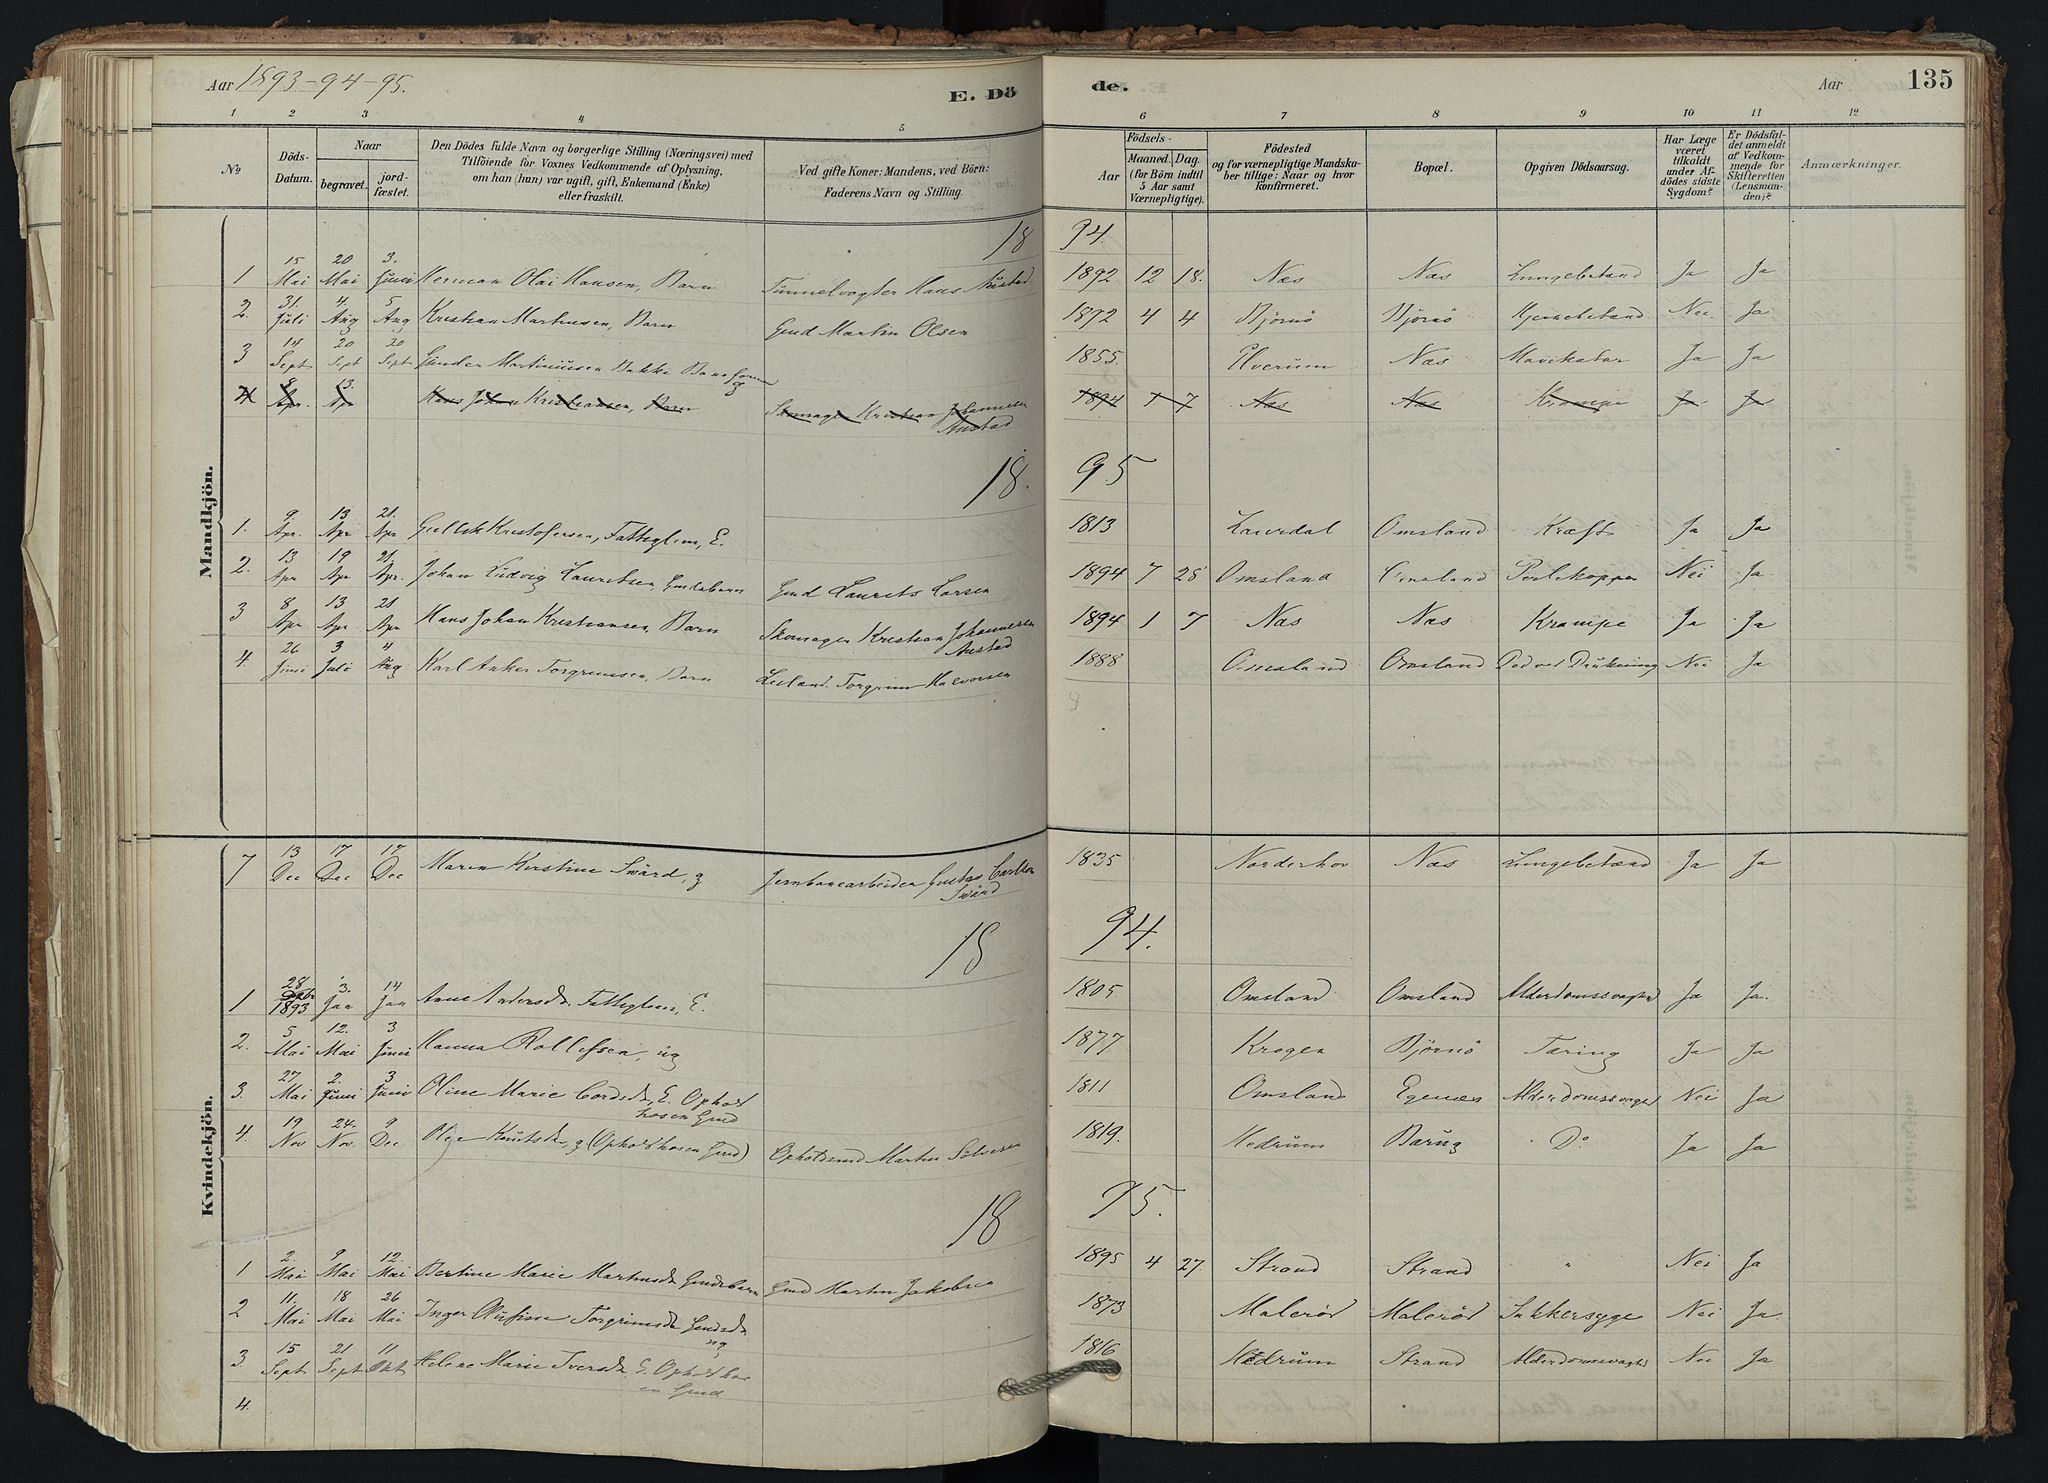 Aar 1893-94-95.
E. Dö de.
Aar 135
1 2 3 4 5 6 7 8 9 10 11 12
No
Döds-Datum.
Naar
begravet.
jord-fæstet.
Den Dödes fulde Navn og borgerlige Stilling (Næringsvei) med
Tilföiende for Voxnes Vedkommende af Oplysning,
om han (hun) var ugift, gift, Enkemand (Enke)
eller fraskilt.
Ved gifte Koner: Mandens, ved Börn:
Faderens Navn og Stilling.
Födsels-
Aar
Maaned. Dag.
(for Börn indtil
5 Aar samt
Værnepligtige).
Födested
og for værnepligtige Mandska-
ber tillige: Naar og hvor
konfirmeret.
Bopæl.
Opgiven Dödsaarsag.
Har Læge
været
tilkaldt
under Af-
dödes sidste
Sygdom?
Er Dödsfal-
det anmeldt
af Vedkom-
mende for
Skifteretten
(Lensman-
den)?
Anmærkninger.
Mandkjön.
18 94.
1 15 Mai 20 Mai 3. Juni Herman Olai Hansen, Barn Tunnelvogter Hans Austad 1892 12 18. Næs Næs Lungebetænd Ja Ja
2. 31. Juli 4. Aug 5 Aug Kristian Martinsen, Barn Gmd Martin Olsen 1872 4 4 Bjørnø Bjørnø Hjernebetænd Nei Ja
3 14 Sept 20 Sept 20 Sept Gunder Martiniusen Bakke Baneformand g 1855. Elverum Næs Mavekatar Ja Ja
4 8 Apr. 13. Apr Hans Johan Kristiansen, Barn Skomager Kristian Johannesen Austad 1894 1 7 Næs Næs Krampe Ja Ja
18. 95
1. 9. Apr. 13 Apr 21. Apr Gullik Kristofersen, Fattiglem, E. 1813 Laurdal Omsland Kræft Ja Ja
2. 13 Apr 19 Apr 21. Apr. Johan Ludvig Lauritsen, Gmdsbarn Gmd Laurits Larsen 1894 7 25 Omsland Omsland Nei Ja.
3 8 Apr 13 Apr 21 Apr Hans Johan Kristiansen, Barn Skomager Kristian Johannesen Austad 1894 1 7 Næs Næs Krampe Ja Ja
4. 26 Juni 3 Juli 4 Aug Karl Anker Torgrimsen, Barn Leiland. Torgrim Halvorsen 1888 Omsland Omsland Død ved Drukning Nei Ja
Kvindekjön.
7 13 Dec 17 Dec 17 Dec Maren Kirstine Swärd, g Jernbanearbeider Gustav Carlson Swärd 1835 Norderhov Næs Lungebetænd Ja Ja
18 94.
1 28 Decbr 1893 3. Jan 14 Jan Anne Andersdr. Fattiglem, E. 1805. Omsland Omsland Alderdomssvaghed Ja Ja.
2. 5 Mai 12. Mai 3 Juni Hanna Rollefsen, ug 1877 Krogen Bjørnø Tæring Ja Ja
3. 27 Mai 2. Juni 3 Juni Oline Marie Cordsdr, E. Ophold hosen Gmd 1811 Omsland Egenæs Alderdomssvaghed Nei Ja
4 19 Nov 24. Nov. 9 Dec Knutsdr, g (Opholdshosen Gmd) Opholdsmd Martin Sölvesen 1819. Hedrum Barug Do Ja Ja
18 95.
1 2. Mai 9 Mai 12. Mai Bertine Marie Martinsdr Gmdsbarn Gmd Martin Jakobsen 1895 4 27. Strand Strand " Nei Ja
2 11. Mai 18 Mai 26 Mai Inger Olufine Torgrimsdr Gmdsdr ug 1873 Malerød Malerød Sukkersyge Nei Ja.
3. 15 Sept 21 Sept 11 Okt Helene Marie Iversdr, E. 1816 Hedrum Strand Alderdomssvaghd Nei Ja
4.